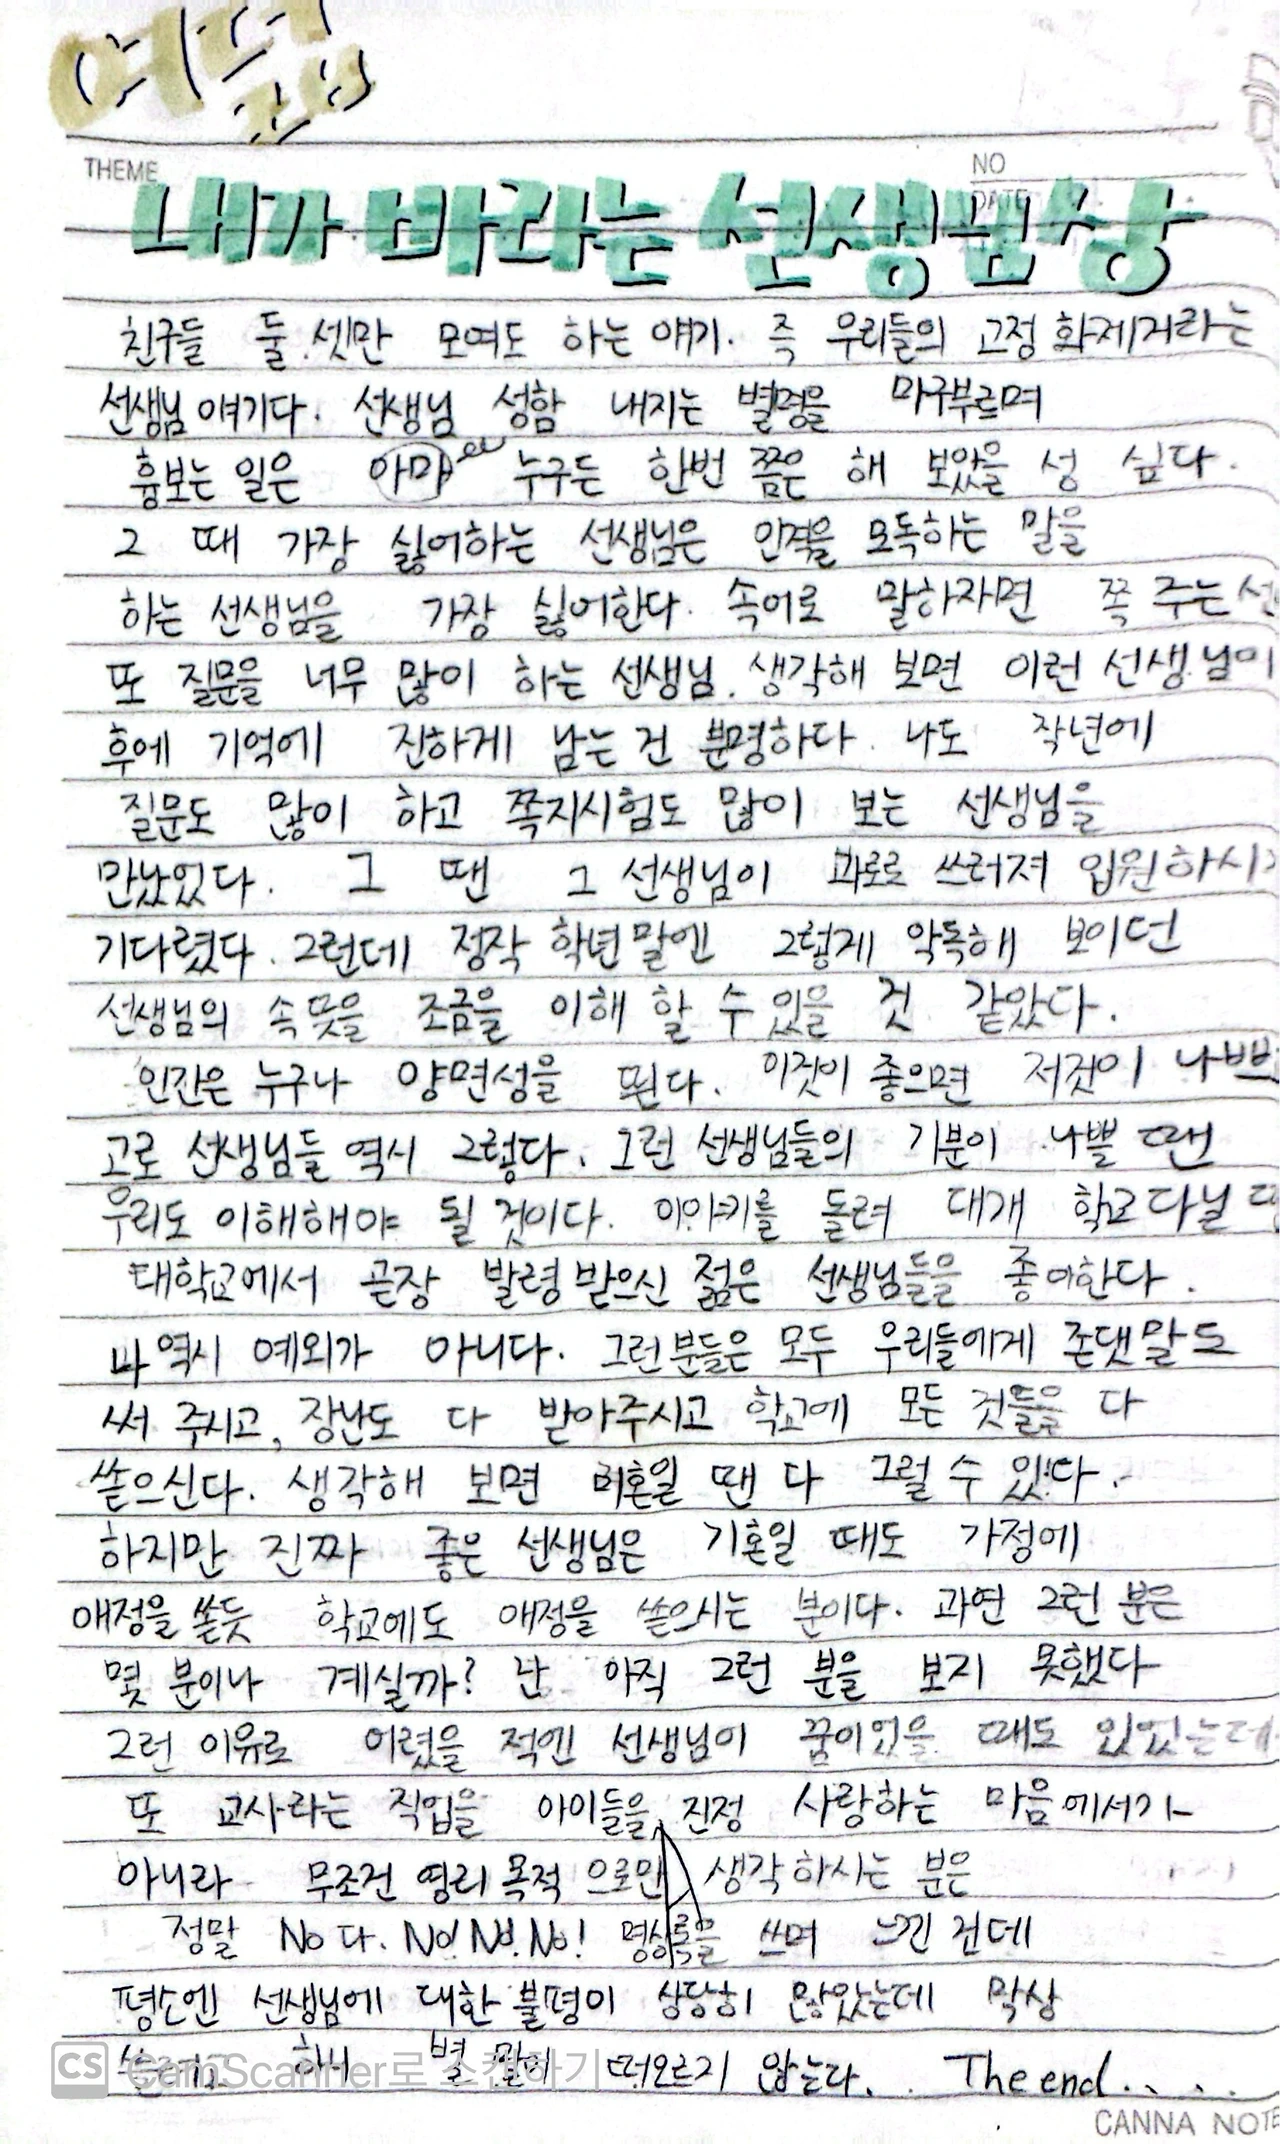 여덟
THEME
NO
DATE
내가 바라는 선생님상
친구들 둘.셋만 모여도 하는 얘기. 즉 우리들의 고정 화제거라는
선생님 얘기다. 선생님 성함 내지는 별명을 마구부르며
흉보는 일은 아마 누구든 한번 쯤은 해 보았을 성 싶다.
그 때 가장 싫어하는 선생님은 인격을 모독하는 말을
하는 선생님을 가장 싫어한다. 속어로 말하자면 쪽 주는
또 질문을 너무 많이 하는 선생님. 생각해 보면 이런 선생님이
후에 기억에 진하게 남는 건 분명하다. 나도 작년에
질문도 많이 하고 쪽지시험도 많이 보는 선생님을
만났었다. 그 땐 그 선생님이 과로로 쓰러져 입원하시
기다렸다. 그런데 정작 학년말엔 그렇게 악독해 보이던
선생님의 속뜻을 조금은 이해 할 수 있을 것 같았다.
인간은 누구나 양면성을 띈다. 이것이 좋으면 저것이 나쁘
고로 선생님들 역시 그렇다. 그런 선생님들의 기분이 나쁠 땐
우리도 이해해야 될 것이다. 이야기를 돌려 대개 학교다닐
대학교에서 곧장 발령받으신 젊은 선생님들을 좋아한다.
나 역시 예외가 아니다. 그런분들은 모두 우리들에게 존댓말도
써 주시고, 장난도 다 받아주시고 학교에 모든 것들을 다
쏟으신다. 생각해 보면 미혼일 땐 다 그럴 수 있다.
하지만 진짜 좋은 선생님은 기혼일 때도 가정에
애정을 쏟듯 학교에도 애정을 쏟으시는 분이다. 과연 그런 분은
몇 분이나 계실까? 난 아직 그런 분을 보지 못했다
그런 이유로 어렸을 적엔 선생님이 꿈이었을 때도 있었는데
또 교사라는 직업을 아이들을 진정 사랑하는 마음에서가
아니라 무조건 영리목적으로만 생각하시는 분은
정말 No다. No! No! No! 명상록을 쓰며 느낀 건데
평소엔 선생님에 대한 불평이 상당히 많았는데 막상
쓸려고 하니 별 말이 떠오르지 않는다. The end....
CS CamScanner로 스캔하기
CANNA NOTE